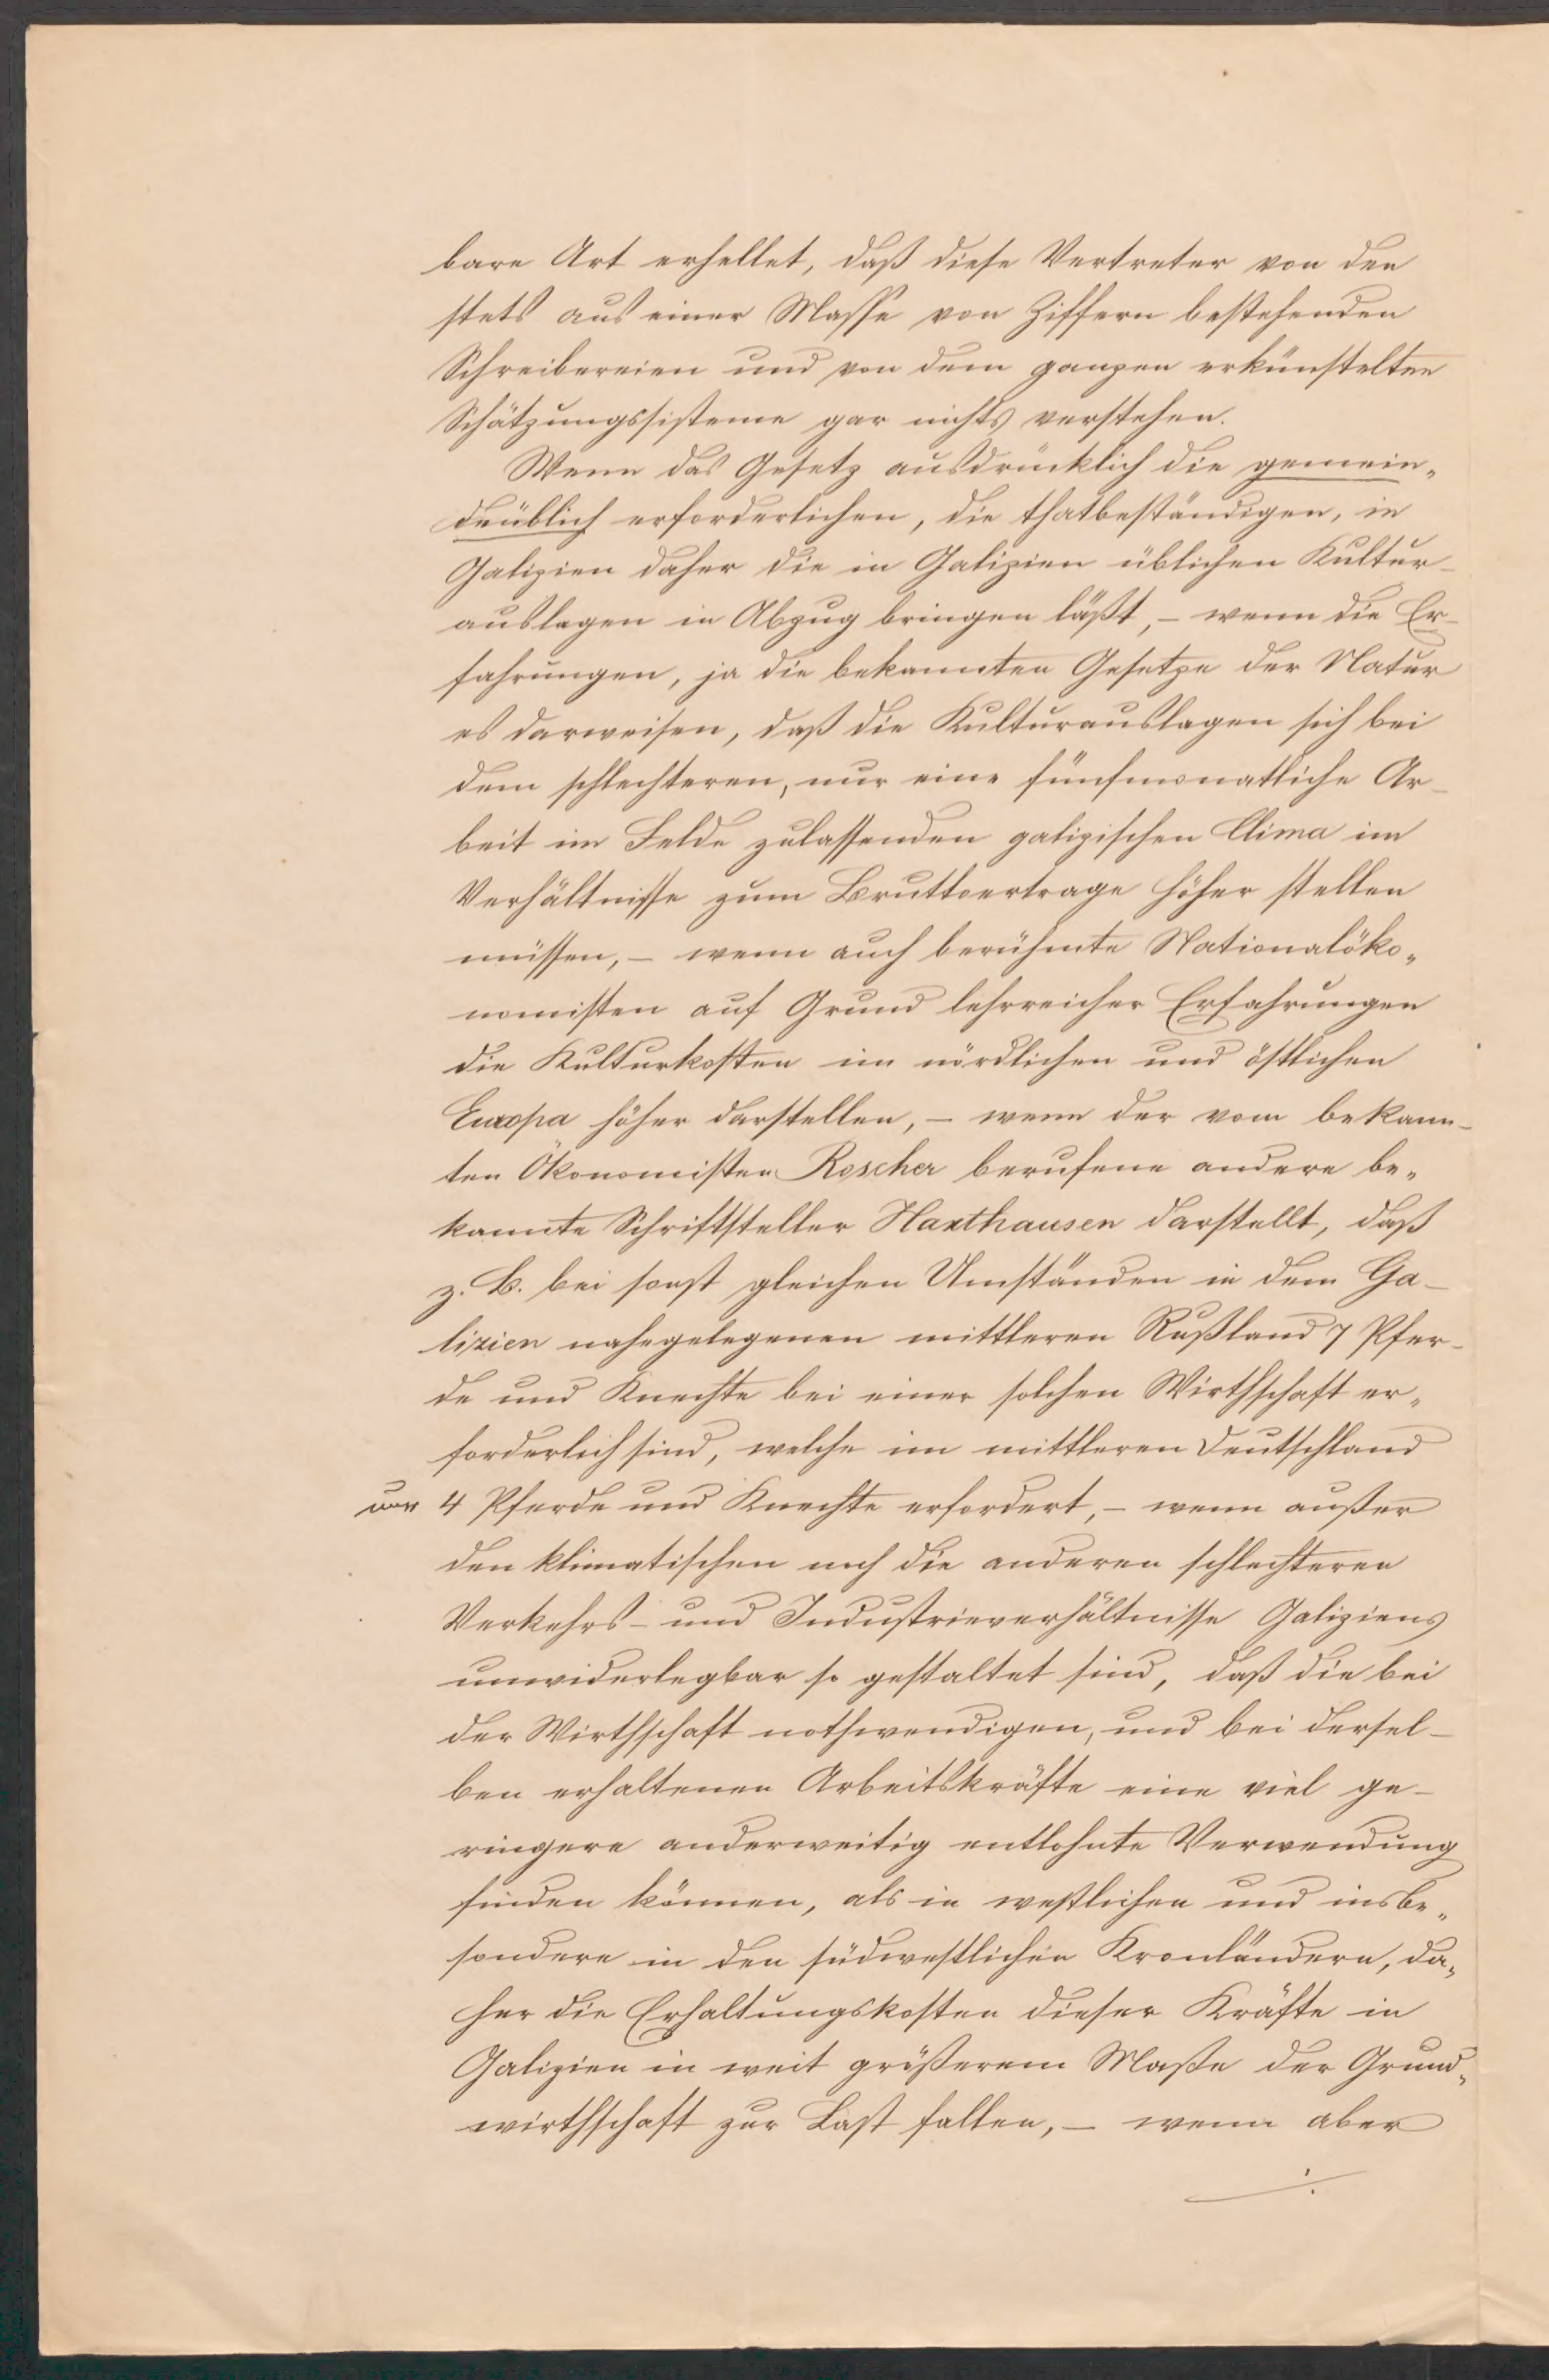 bare Art erhellet, daß diese Vertreter von den
stets aus einer Masse von Ziffern bestehenden
Schreibereien und von dem ganzen erkünstelten
Schätzungssisteme gar nichts verstehen.
Wenn das Gesetz ausdrücklich die gemein„
deüblich erforderlichen, die thatbeständigen, in
Galizien daher die in Galizien üblichen Kultur-
auslagen in Abzug bringen läßt, – wenn die Er-
fahrungen, ja die bekannten Gesetze der Natur
es darweisen, daß die Kulturauslagen sich bei
dem schlechteren, nur eine fünfmonatliche Ar-
beit im Felde zulassenden galizischen Clima im
Verhältnisse zum Bruttoertrage höher stellen
müssen, – wenn auch berühmte Nationalöko„
nomisten auf Grund lehrreicher Erfahrungen
die Kulturkosten im nördlichen und östlichen
Europa höher darstellen, – wenn der vom bekann-
ten Ökonomisten Roscher berufene andere be„
kannte Schriftsteller Haxthausen darstellt, daß
z. B. bei sonst gleichen Umständen in dem Ga-
lizien nahegelegenen mittleren Rußland 7 Pfer-
de und Knechte bei einer solchen Wirthschaft er„
forderlich sind, welche im mittleren Deutschland
nur 4 Pferde und Knechte erfordert, – wenn außer
den klimatischen noch die anderen schlechteren
Verkehrs- und Industrieverhältnisse Galiziens
unwiderlegbar so gestaltet sind, daß die bei
der Wirthschaft nothwendigen, und bei dersel-
ben erhaltenen Arbeitskräfte eine viel ge-
ringere anderweitig entlohnte Verwendung
finden können, als in westlichen und insbe„
sondere in den südwestlichen Kronländern, da„
her die Erhaltungskosten dieser Kräfte in
Galizien in weit größerem Maße der Grund„
wirthschaft zur Last fallen, – wenn aber
./.